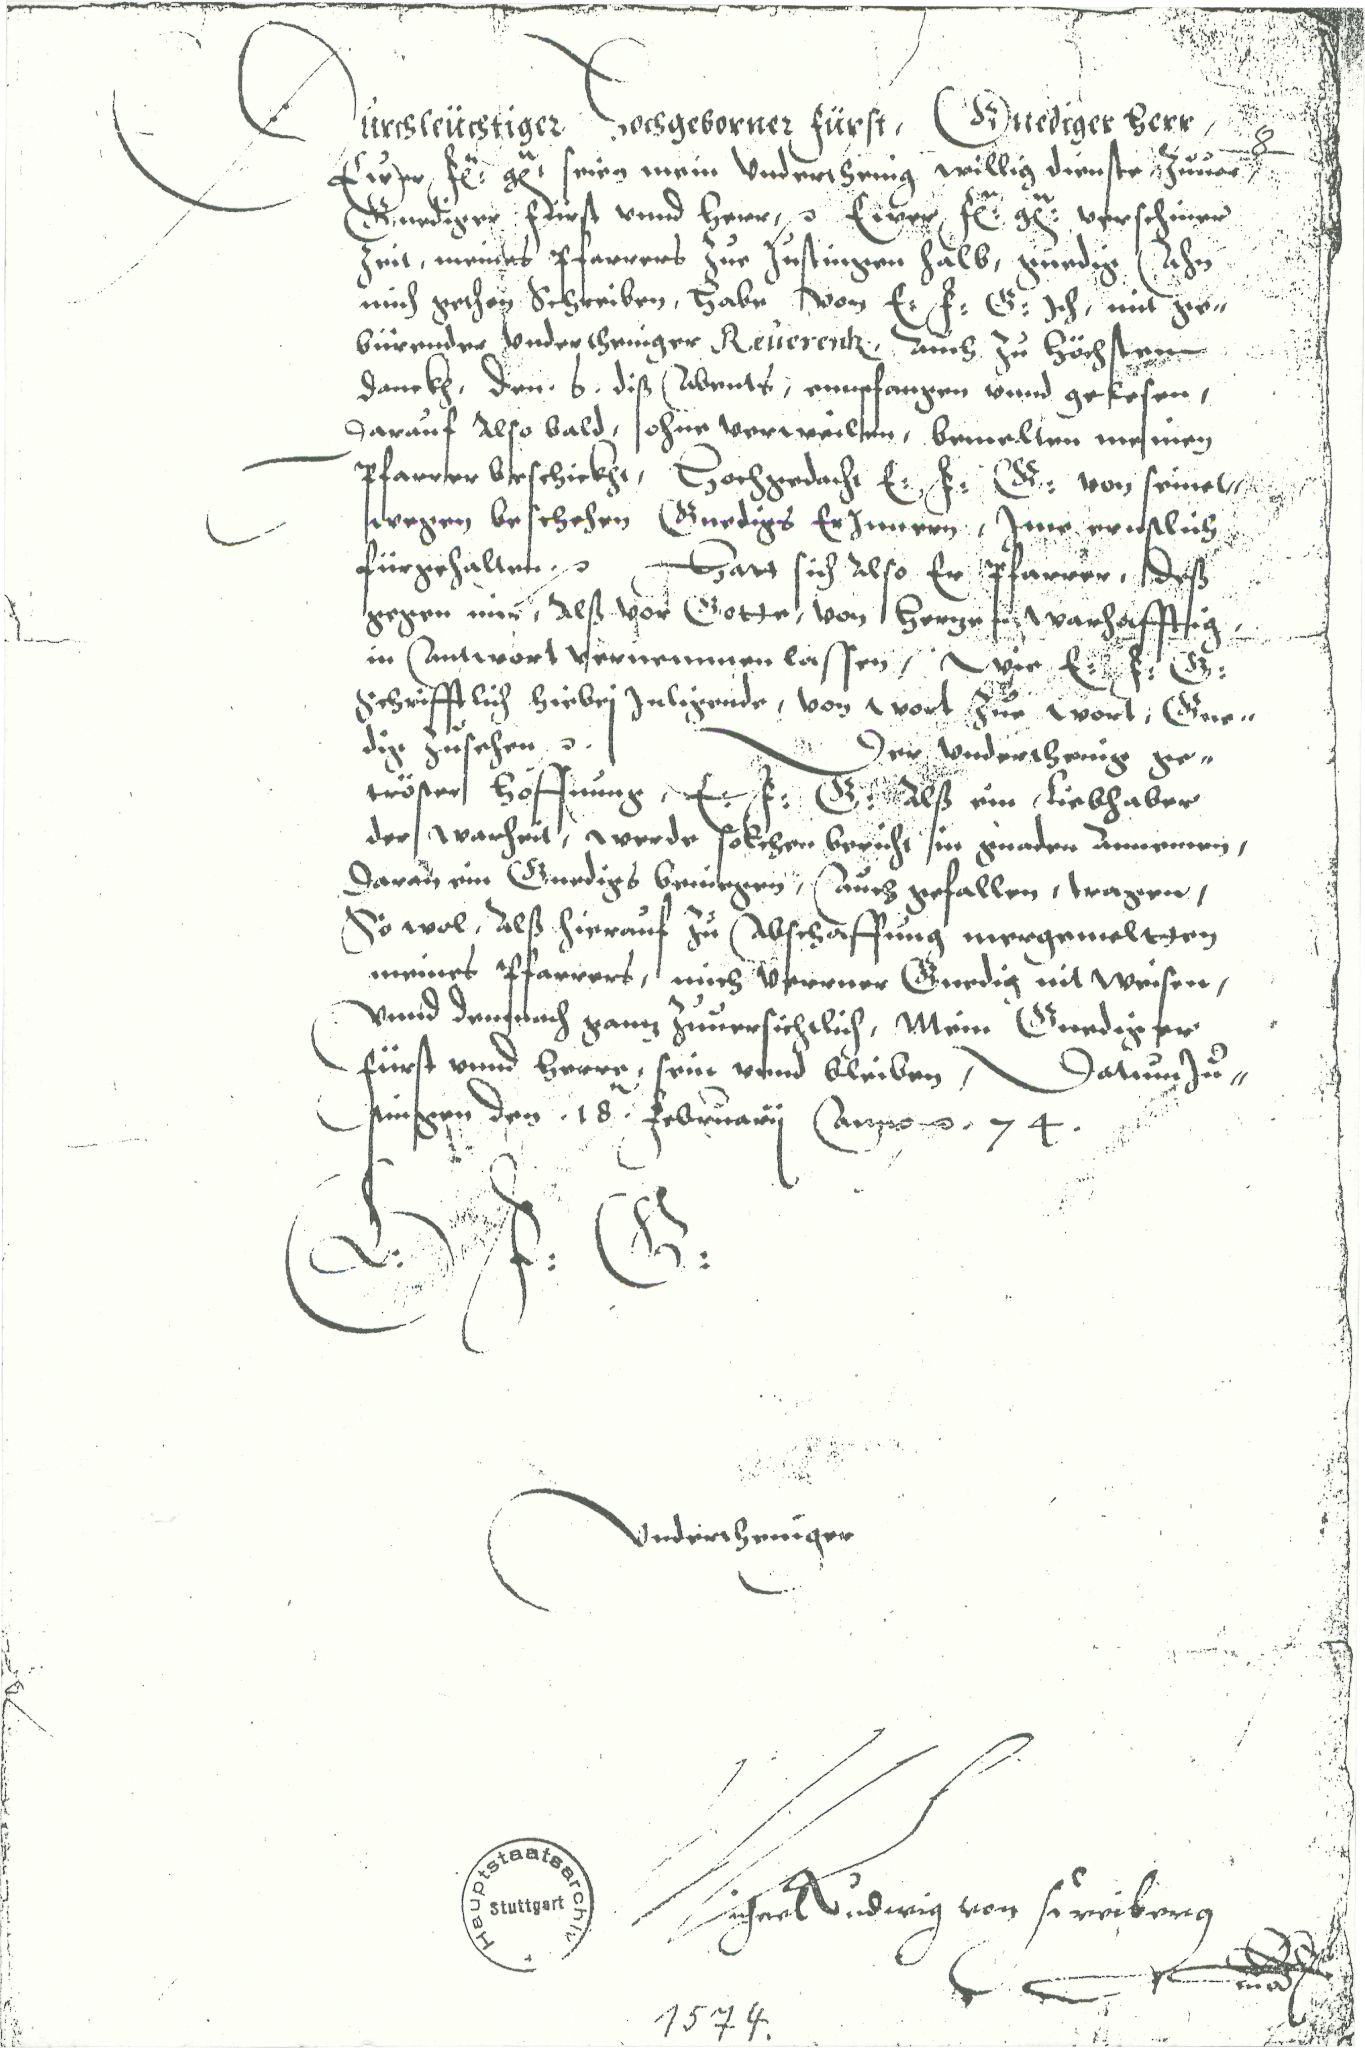 Durchleüchtiger Hochgeborner Fürst, Gnediger Herr,
8
Ewer fl: gl: seien mein underthenig willig dienste Zuuor,
Gnediger Fürst vnnd Herr, Ewer fl: gl: verschiner
Zeit, meines Pfarrers Zue Justingen halb, gnedig Ahn
mich gethon Schreiben, Habe Von E: F: G: Ich, mit ge-
bürender Vndertheniger Reuerentz, Auch Zu Höchstem
danckh, den .6. diß Abents, empfangen vnnd gelesen,
Darauf Also bald, ohne verweilen, bemelten meinen
Pfarrer beschickht, Hochgedacht E: F: G: von seinet-
wegen beschehen Gnedigs ErInnern, Ime ernstlich
fürgehalten. Hatt sich Also Er Pfarrer, deß
gegen mir, Alß vor Gotte, von Hertzen warhafftig,
in Antwort vernemmen lassen, Wie E: F: G:
Schrifftlich hiebej Inligende, von wort Zue wort, Gne-
dig Zusehen. Der Vnderthenig ge-
tröster Hoffnung, E: F: G: Alß ein Liebhaber
der warheit, werde solchen bericht in gnaden Annemen,
Daran ein Gnedigs beniegen, Auch gefallen, tragen,
So wol, Alß hierauf Zu Abschaffung mergemeltten
meines Pfarrers, mich Verrner Gnedig nit weisen,
Vnnd demnach gantz Zuuersichtlich, Mein Gnediger
Fürst vnnd Herre, sein vnnd bleiben, Datum Ju-
stingen den .18. February Anno .74.
E: F: G:
Vndertheniger
Michael Ludwig von Freiberg
Hauptstaatsarchiv
Stuttgart
1574.